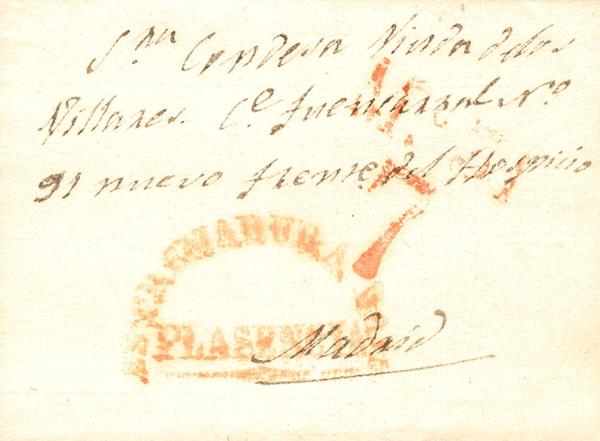 Sra Condesa Viuda de los
Villares. Ce. fuencarral No.
91 nuevo frente del Hospicio
7
ESTREMADURA
PLASENCIA
Madrid